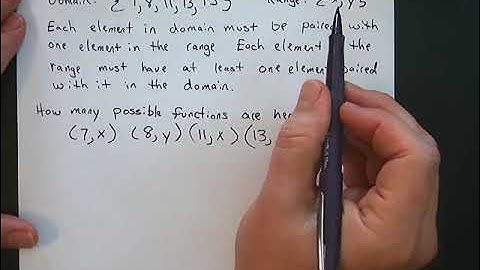 Domain: { 7, 8, 11, 13, 15 } Range: { x, y }
Each element in domain must be paired with
one element in the range Each element the
range must have at least one element paired
with it in the domain.
How many possible functions are
(7,x) (8,y) (11,x) (13,